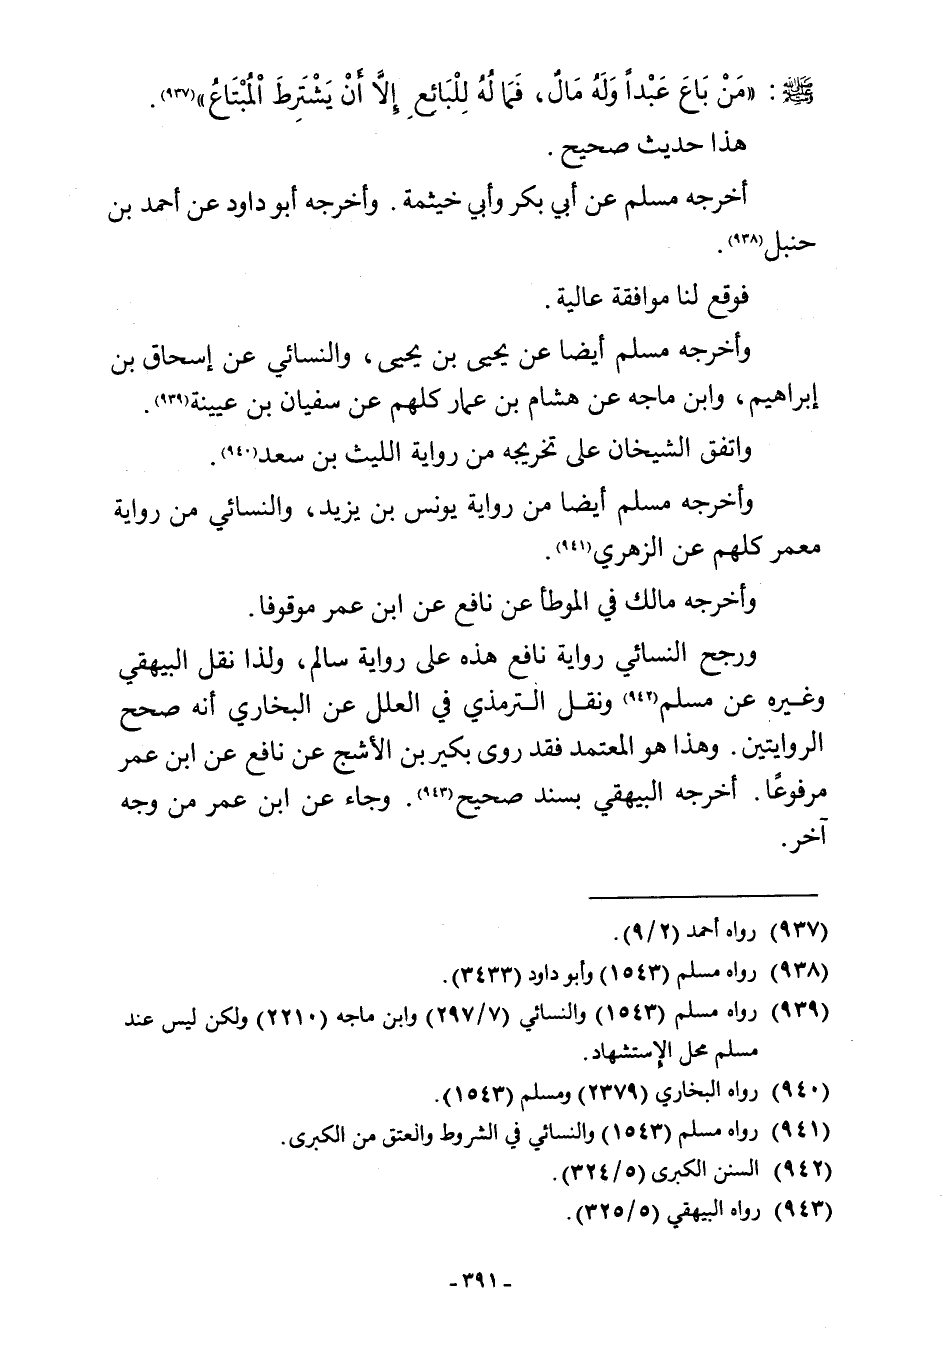 ﷺ : «مَنْ بَاعَ عَبْداً وَلَهُ مَالٌ، فَمَا لُهُ لِلْبَائِعِ إِلَّا أَنْ يَشْتَرِطَ الْمُبْتَاعُ»(٩٣٧).
هذا حديث صحيح .
أخرجه مسلم عن أبي بكر وأبي خيثمة . وأخرجه أبو داود عن أحمد بن
حنبل(٩٣٨) .
فوقع لنا موافقة عالية .
وأخرجه مسلم أيضا عن يحيى بن يحيى، والنسائي عن إسحاق بن
إبراهيم، وابن ماجه عن هشام بن عمار كلهم عن سفيان بن عيينة(٩٣٩).
واتفق الشيخان على تخريجه من رواية الليث بن سعد(٩٤٠).
وأخرجه مسلم أيضا من رواية يونس بن يزيد، والنسائي من رواية
معمر كلهم عن الزهري(٩٤١).
وأخرجه مالك في الموطأ عن نافع عن ابن عمر موقوفا.
ورجح النسائي رواية نافع هذه على رواية سالم، ولذا نقل البيهقي
وغيره عن مسلم(٩٤٢) ونقل الترمذي في العلل عن البخاري أنه صحح
الروايتين. وهذا هو المعتمد فقد روى بكير بن الأشج عن نافع عن ابن عمر
مرفوعًا. أخرجه البيهقي بسند صحيح(٩٤٣). وجاء عن ابن عمر من وجه
آخر.
(٩٣٧) رواه أحمد (٩/٢).
(٩٣٨) رواه مسلم (١٥٤٣) وأبو داود (٣٤٣٣).
(٩٣٩) رواه مسلم (١٥٤٣) والنسائي (٢٩٧/٧) وابن ماجه (٢٢١٠) ولكن ليس عند
مسلم محل الإستشهاد.
(٩٤٠) رواه البخاري (٢٣٧٩) ومسلم (١٥٤٣).
(٩٤١) رواه مسلم (١٥٤٣) والنسائي في الشروط والعتق من الكبرى.
(٩٤٢) السنن الكبرى (٣٢٤/٥).
(٩٤٣) رواه البيهقي (٣٢٥/٥).
- ٣٩١ -